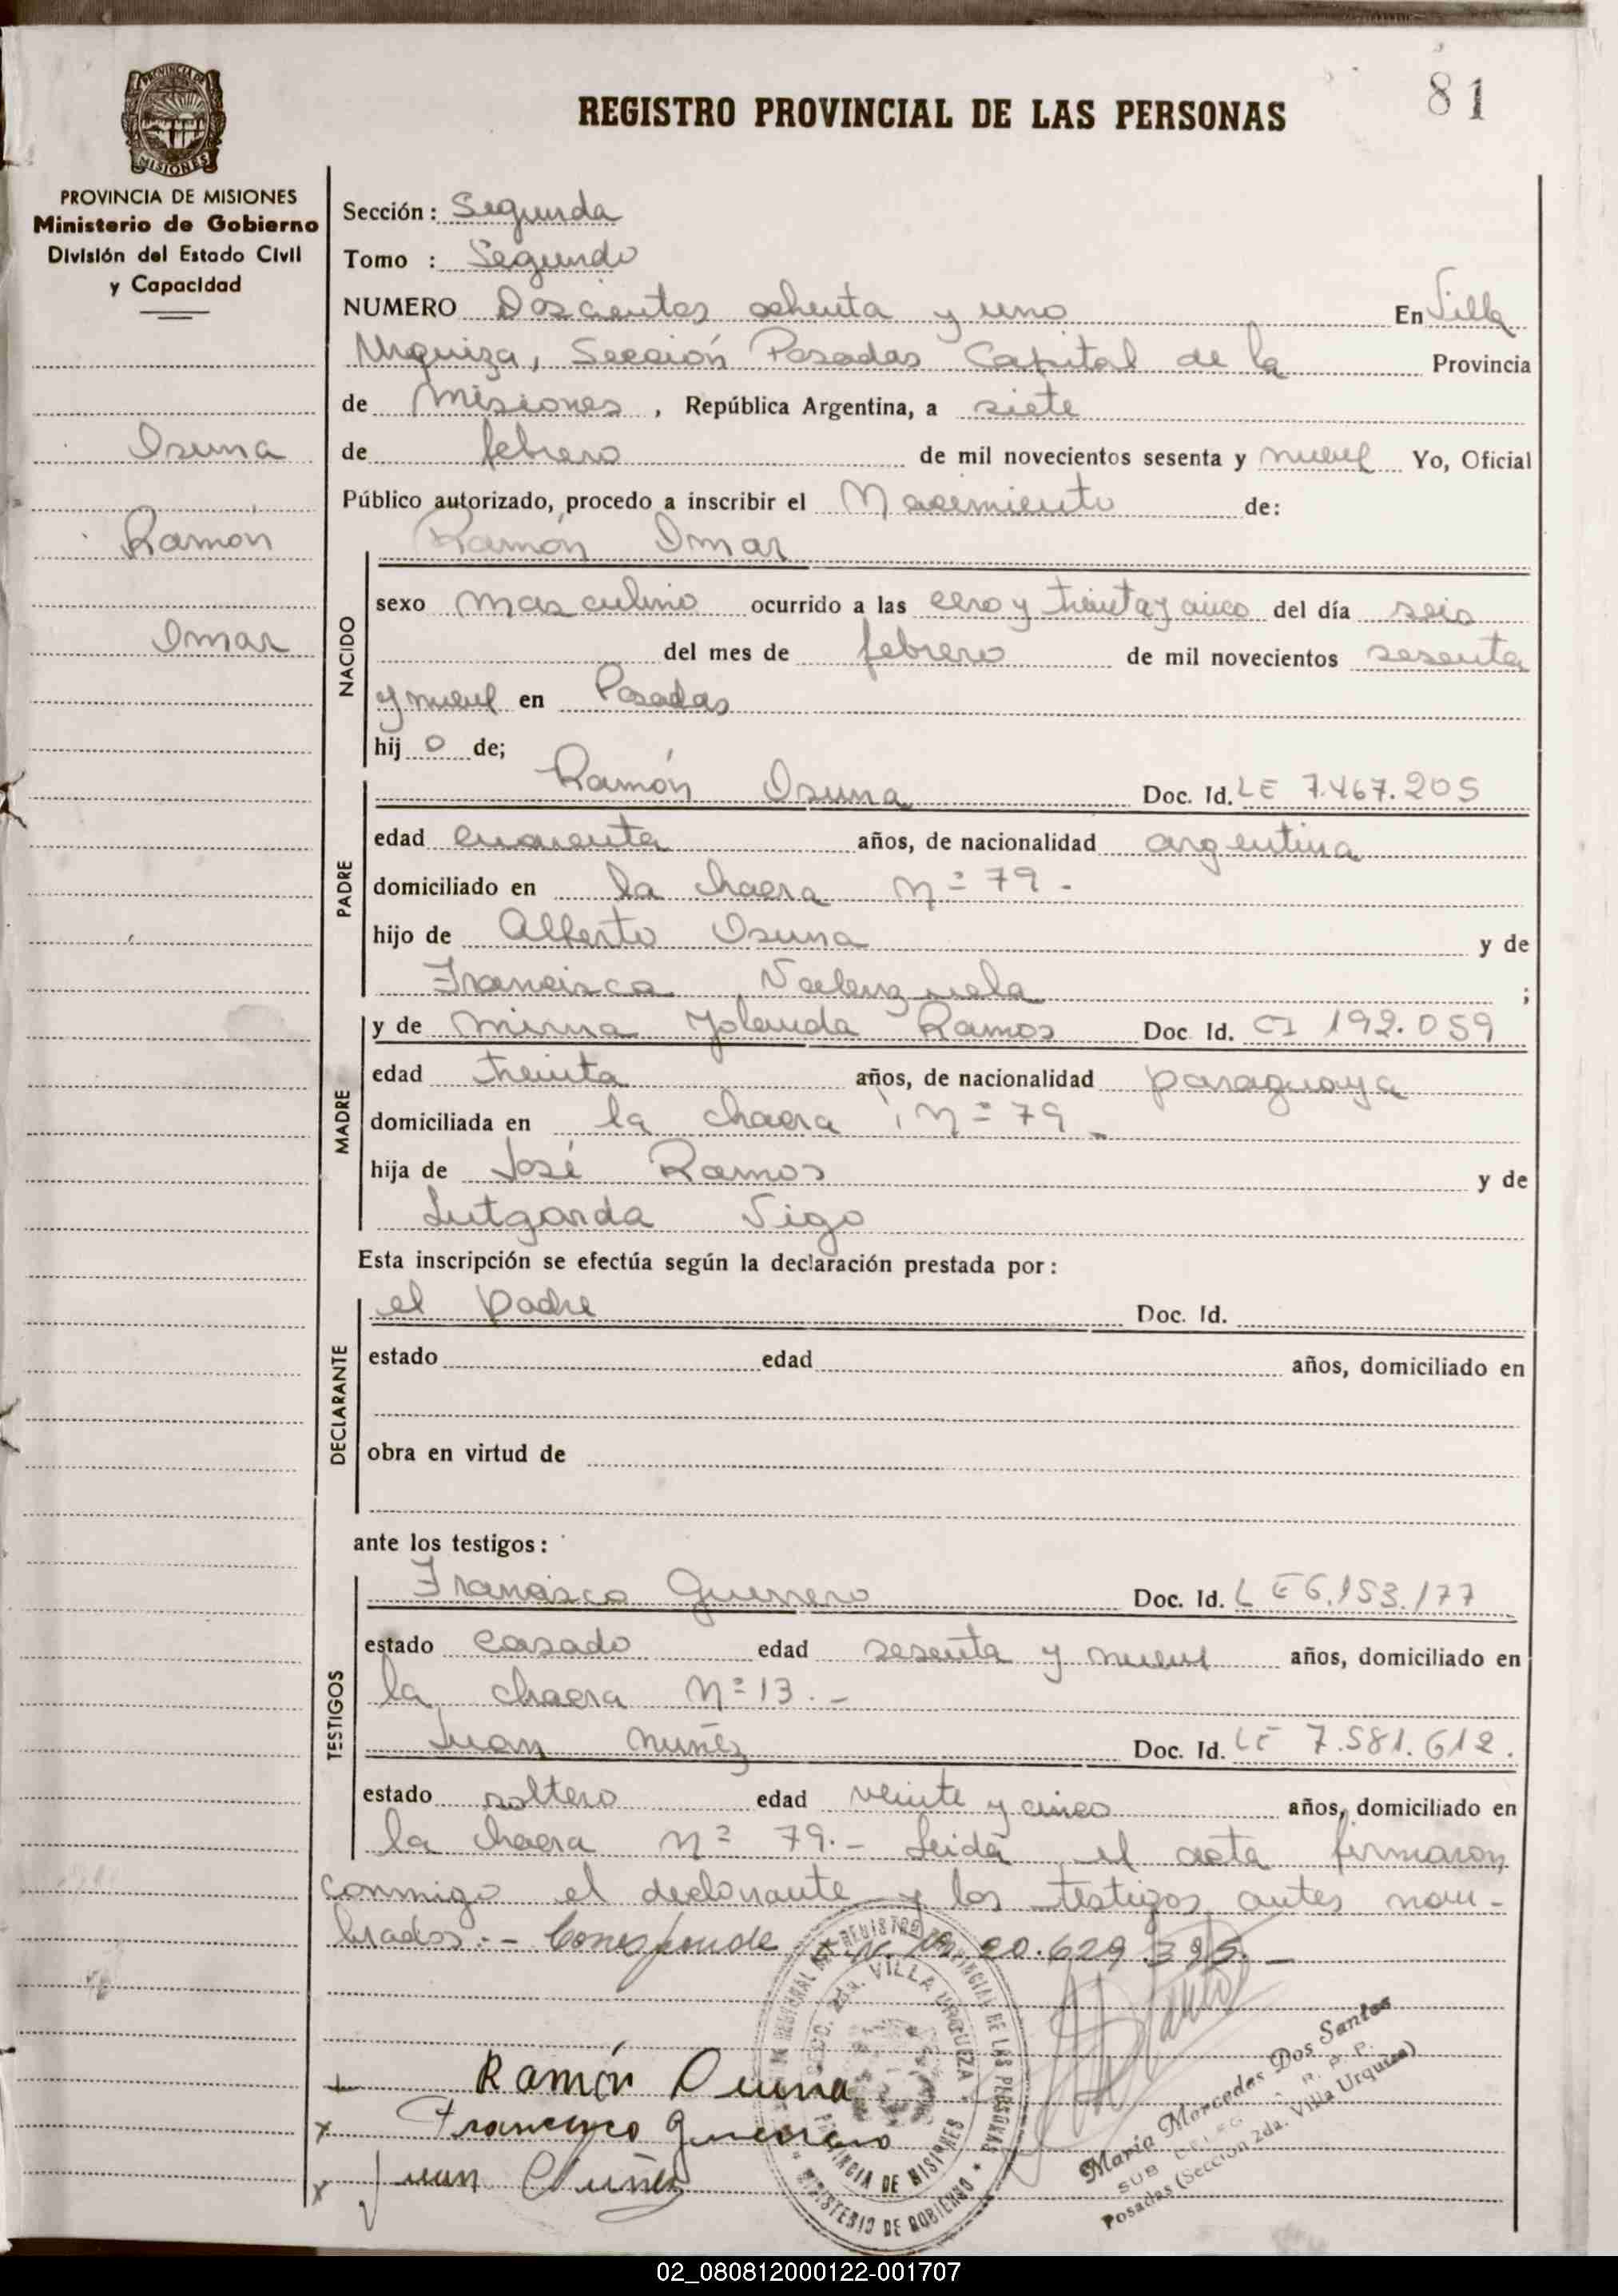 81
REGISTRO PROVINCIAL DE LAS PERSONAS
PROVINCIA DE MISIONES
PROVINCIA DE MISIONES
Ministerio de Gobierno
División del Estado Civil
y Capacidad
Osuna
Ramón
Omar
Sección: Segunda
Tomo : Segundo
NUMERO Doscientos ochenta y uno En Villa
Urquiza, Sección Posadas Capital de la Provincia
de Misiones, República Argentina, a siete
de febrero de mil novecientos sesenta y nueve Yo, Oficial
Público autorizado, procedo a inscribir el Nacimiento de:
Ramón Omar
NACIDO
sexo masculino ocurrido a las cero y treinta y cinco del día seis
del mes de febrero de mil novecientos sesenta
y nueve en Posadas
hij o de;
PADRE
Ramón Osuna Doc. Id. LE 7.467.205
edad cuarenta años, de nacionalidad argentina
domiciliado en la chacra Nº 79.-
hijo de Alberto Osuna y de
Francisca Valenzuela ;
MADRE
y de Mirna Yolanda Ramos Doc. Id. CI 192.059
edad treinta años, de nacionalidad paraguaya
domiciliada en la chacra Nº 79.-
hija de José Ramos y de
Lutgarda Vigo
Esta inscripción se efectúa según la declaración prestada por:
DECLARANTE
el padre Doc. Id.
estado edad años, domiciliado en
obra en virtud de
ante los testigos:
TESTIGOS
Francisco Guerrero Doc. Id. LE 6.153.177
estado casado edad sesenta y nueve años, domiciliado en
la chacra Nº 13.-
Juan Nuñez Doc. Id. LE 7.581.612.
estado soltero edad veinte y cinco años, domiciliado en
la chacra Nº 79.- Leida el acta firmaron
conmigo el declarante y los testigos antes nom-
brados.- Corresponde D.N.I. 20.629.395.-
REGISTRO PROVINCIAL DE LAS PERSONAS
SECC. 2da. VILLA URQUIZA
PROVINCIA DE MISIONES
MINISTERIO DE GOBIERNO
+ Ramón Osuna
x Francisco Guerrero
x Juan Nuñez
María Mercedes Dos Santos
SUB DELEG. R. P. P.
Posadas (Sección 2da. Villa Urquiza)
02_080812000122-001707